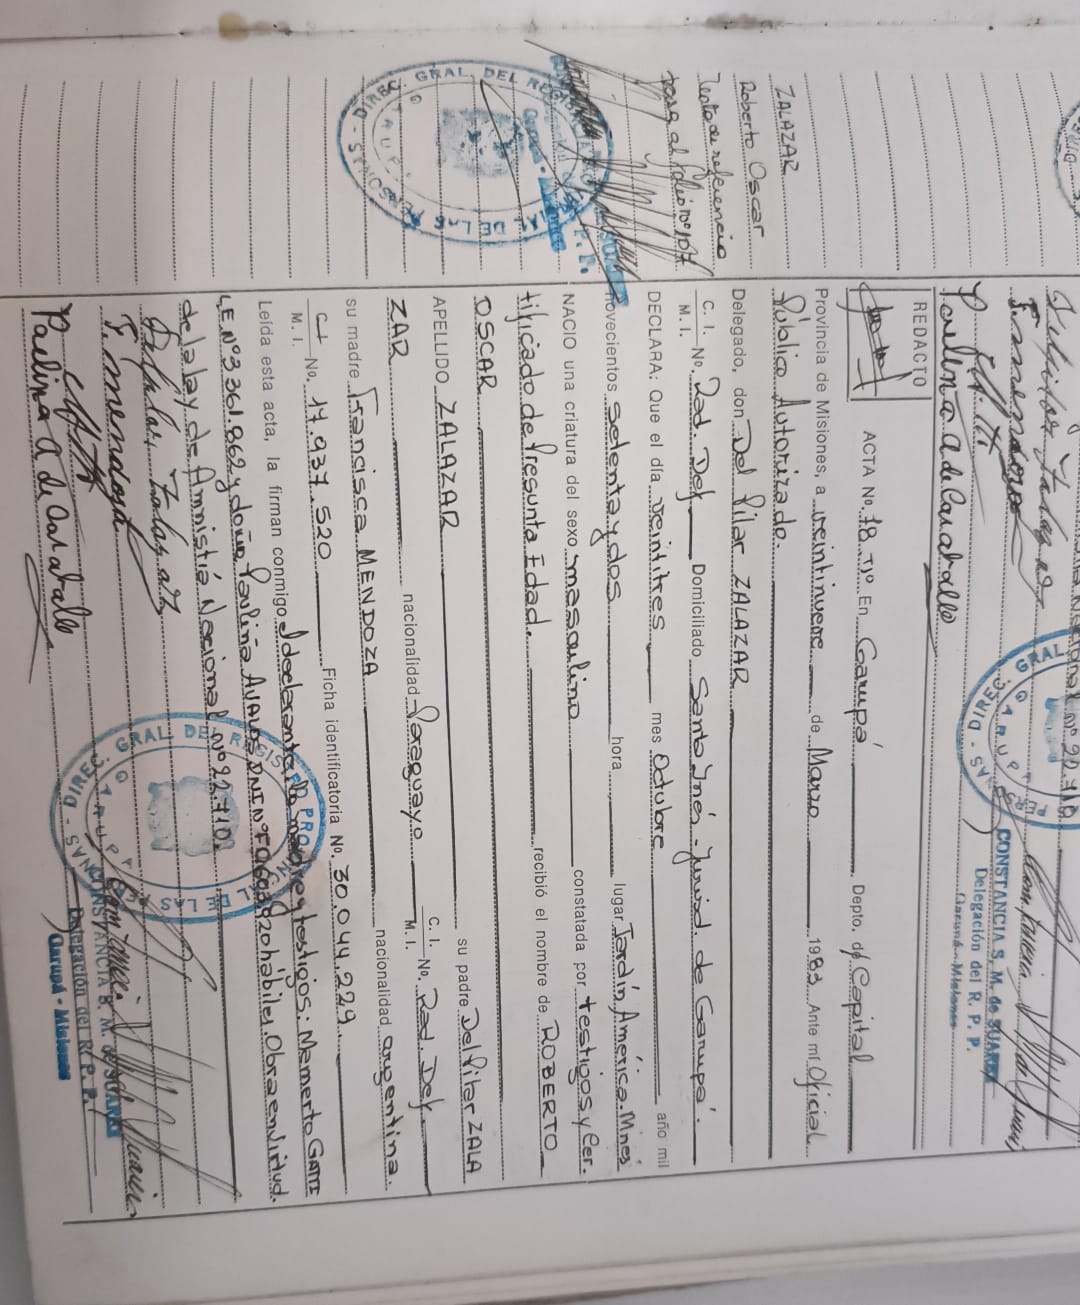 Paulina A de Caraballo
CONSTANCIA S. M. de SUAREZ
Delegación del R. P. P.
Garupá - Misiones
REDACTO
ACTA No. 78 Tº En Garupá Depto. de Capital
Provincia de Misiones, a veintinueve de Marzo 1983 Ante mí Oficial
Público Autorizado.
Delegado, don Del Pilar ZALAZAR
C. I. M. I. No. Rad. Def. Domiciliado Santa Inés - Jurid. de Garupá.
DECLARA: Que el día veintitres mes Octubre año mil
novecientos setenta y dos hora lugar Jardín América. Mnes
NACIO una criatura del sexo masculino constatada por testigos y Cer.
tificado de Presunta Edad. recibió el nombre de ROBERTO
OSCAR
APELLIDO ZALAZAR su padre Del Pilar ZALA
ZAR nacionalidad Paraguaya C. I. M. I. No. Rad. Def.
su madre Francisca MENDOZA nacionalidad argentina.
C I M. I. No. 17.937.520 Ficha identificatoria No. 30.044.229
Leída esta acta, la firman conmigo el declarante, la madre y testigos: Memerto GATTI
L.E. Nº 3.361.862 y doña Paulina AVALOS DNI Nº F0 hábiles, Obra en virtud.
de la ley de Amnistía Nacional Nº 22.710.
F. mendoza
Paulina A de Caraballo
ZALAZAR
Roberto Oscar
Texto de referencia
pasa al Folio 107
DIREC. GRAL. DEL REGISTRO PROVINCIAL DE LAS PERSONAS
GARUPA
CONSTANCIA S. M. de SUAREZ
Delegación del R. P. P.
Garupá - Misiones